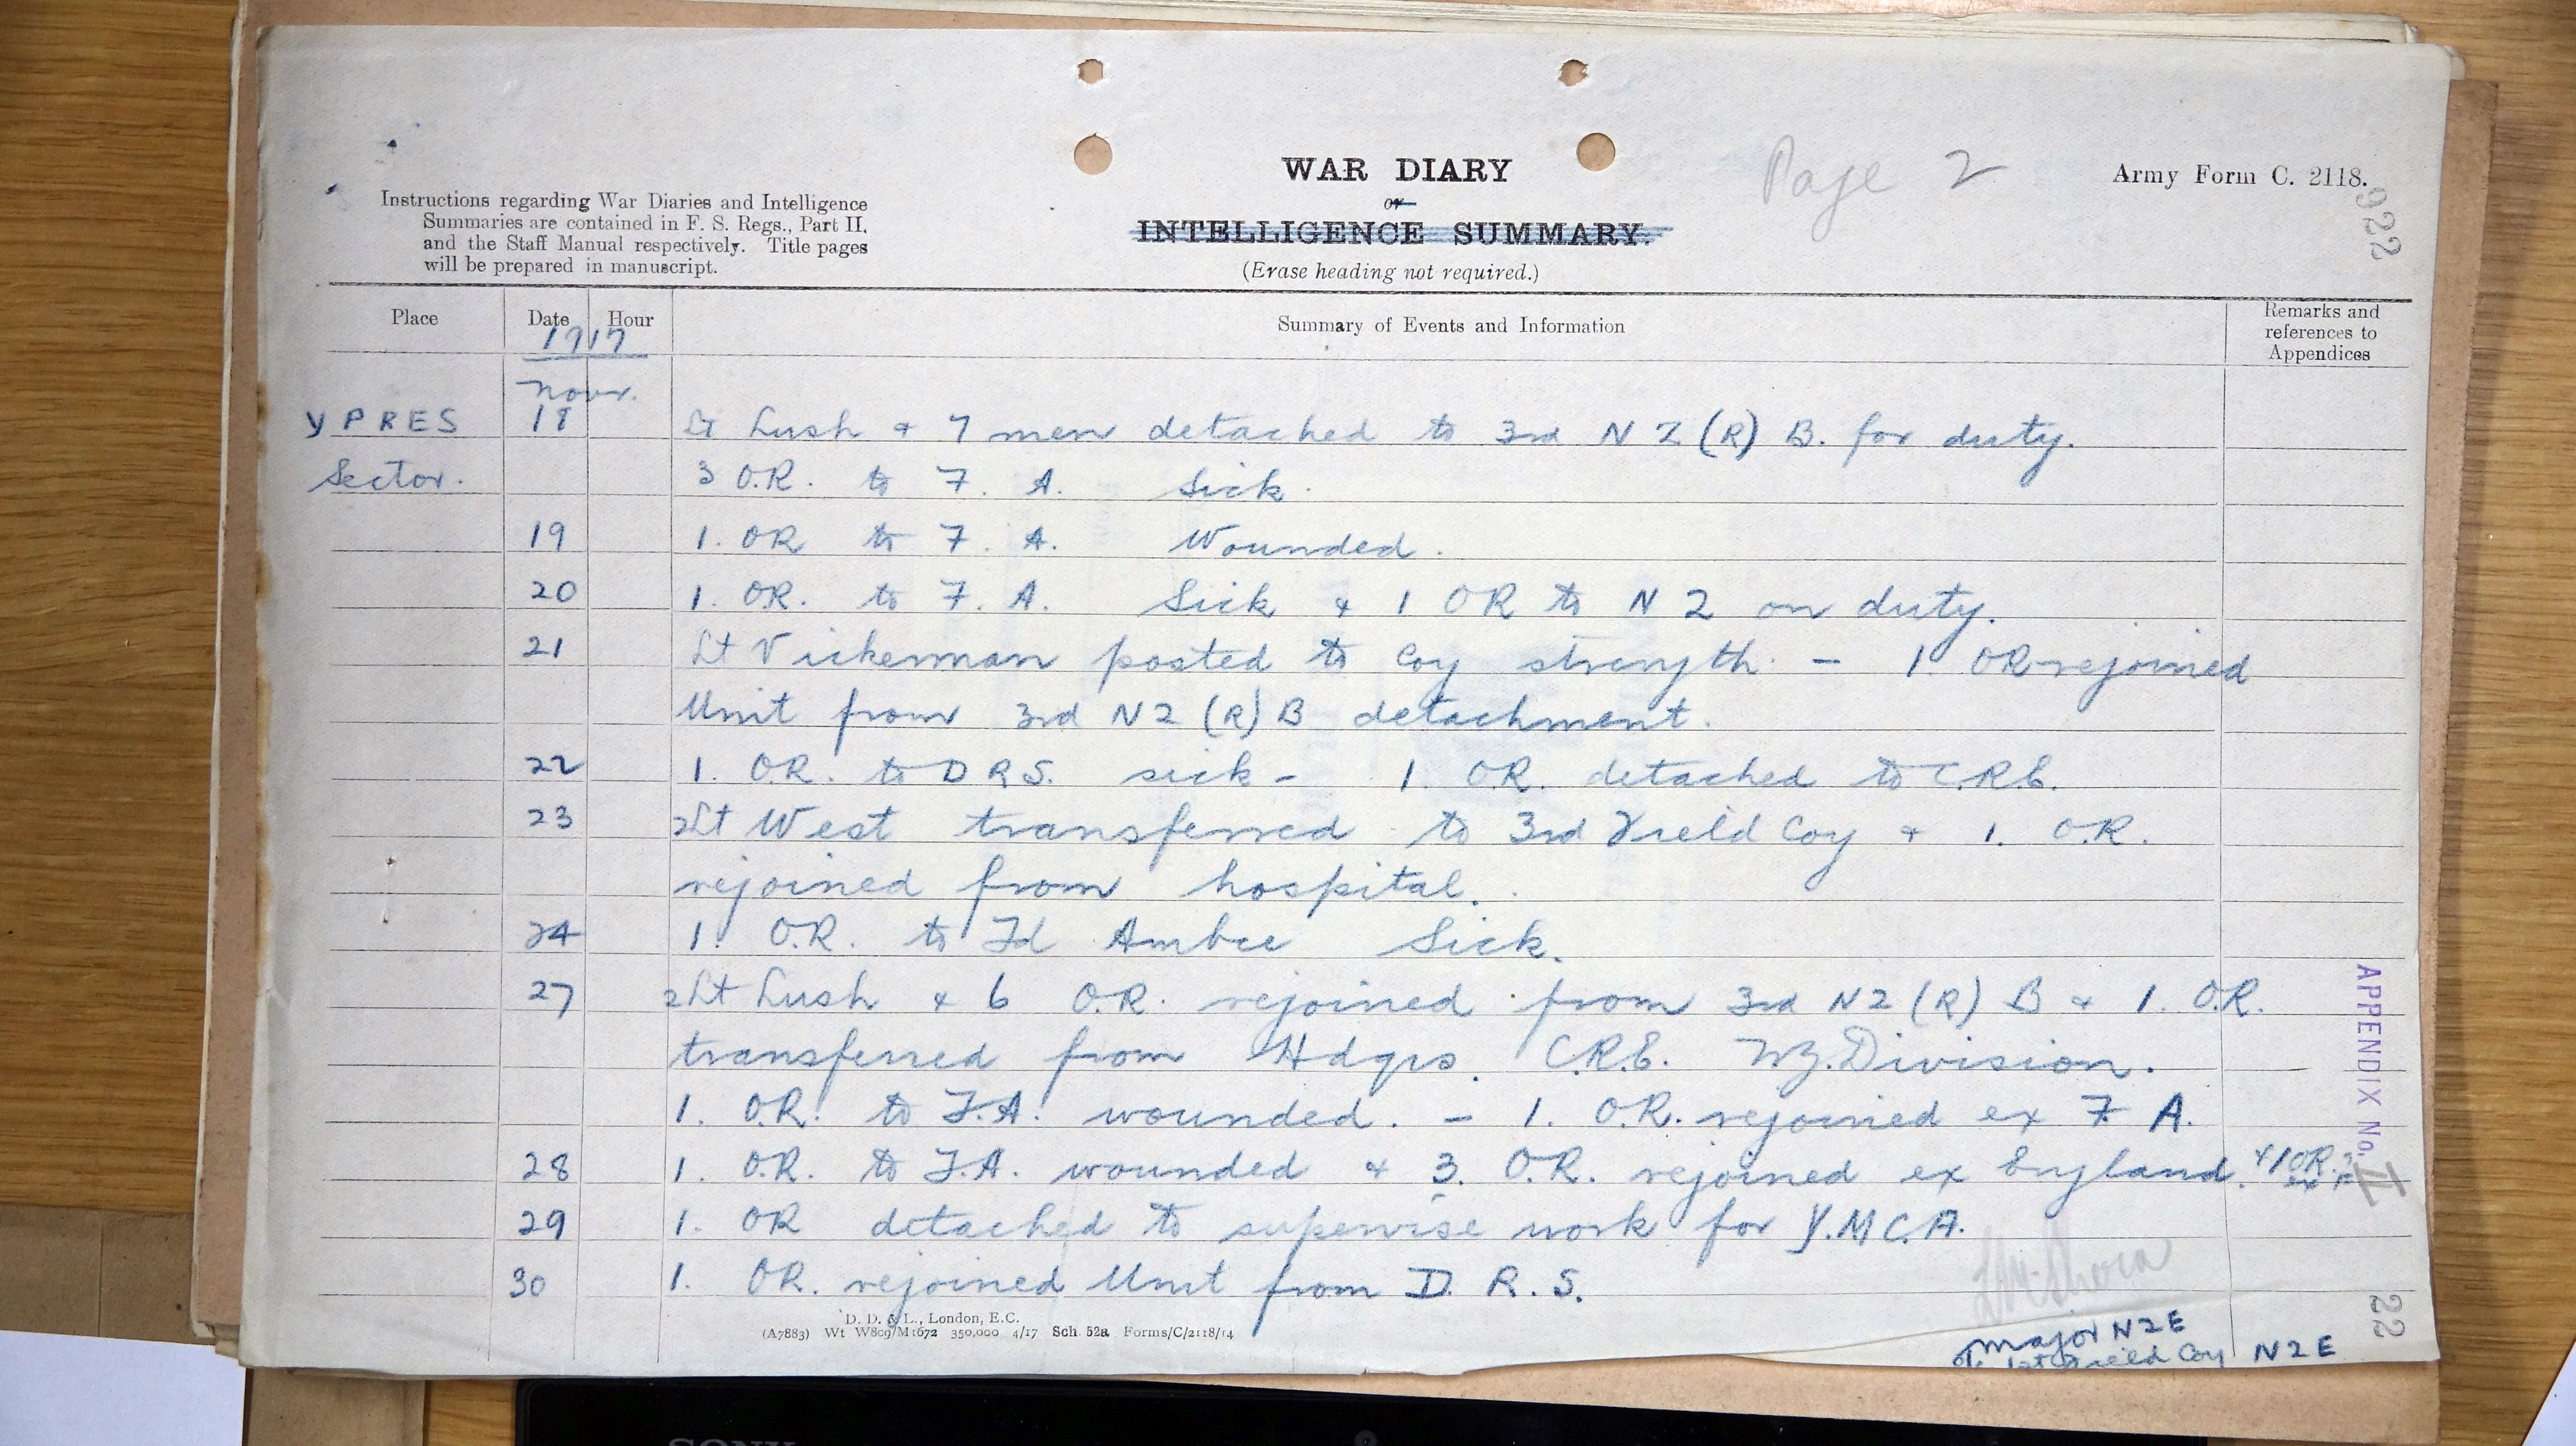 Page 2
WAR DIARY
or
INTELLIGENCE SUMMARY.
(Erase heading not required.)
Army Form C. 2118.
922
Instructions regarding War Diaries and Intelligence
Summaries are contained in F. S. Regs., Part II.
and the Staff Manual respectively. Title pages
will be prepared in manuscript.
Place Date Hour Summary of Events and Information Remarks and references to Appendices
1917
Novr.
YPRES 18 Lt Lush & 7 men detached to 3rd N Z (R) B. for duty.
Sector. 3 O.R. to F. A. Sick.
19 1. OR to F. A. Wounded.
20 1. OR. to F. A. Sick & 1 OR to N Z on duty.
21 Lt Vickerman posted to Coy strength. - 1. OR rejoined
Unit from 3rd N Z (R) B detachment.
22 1. O.R. to D R S. sick - 1. O.R. detached to C.R.E.
23 2Lt West transferred to 3rd Field Coy & 1. O.R.
rejoined from hospital.
24 1. O.R. to Fd Ambce Sick.
27 2Lt Lush & 6 O.R. rejoined from 3rd N Z (R) B & 1. O.R.
transferred from Hdqrs. C.R.E. N.Z. Division.
1. O.R. to F.A. wounded. - 1. O.R. rejoined ex F A.
28 1. O.R. to F.A. wounded & 3. O.R. rejoined ex England. & 1 OR.
29 1. OR detached to supervise work for Y.M.C.A.
30 1. OR. rejoined Unit from D. R. S.
Major N Z E
1st Field Coy N Z E
APPENDIX No. II
22
D. D. & L., London, E.C.
(A7883) Wt W809/M1672 350,000 4/17 Sch. 52a Forms/C/2118/14
SONY